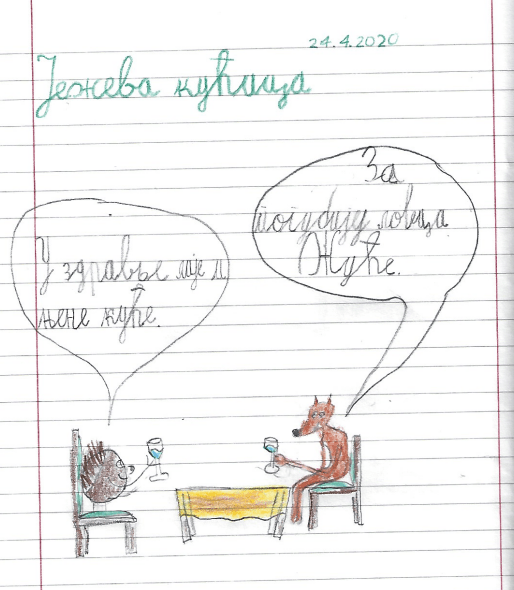 24.4.2020
Јежева кућица
За
погубију ловца
Жуће.
У здравље лије и
њене куће.